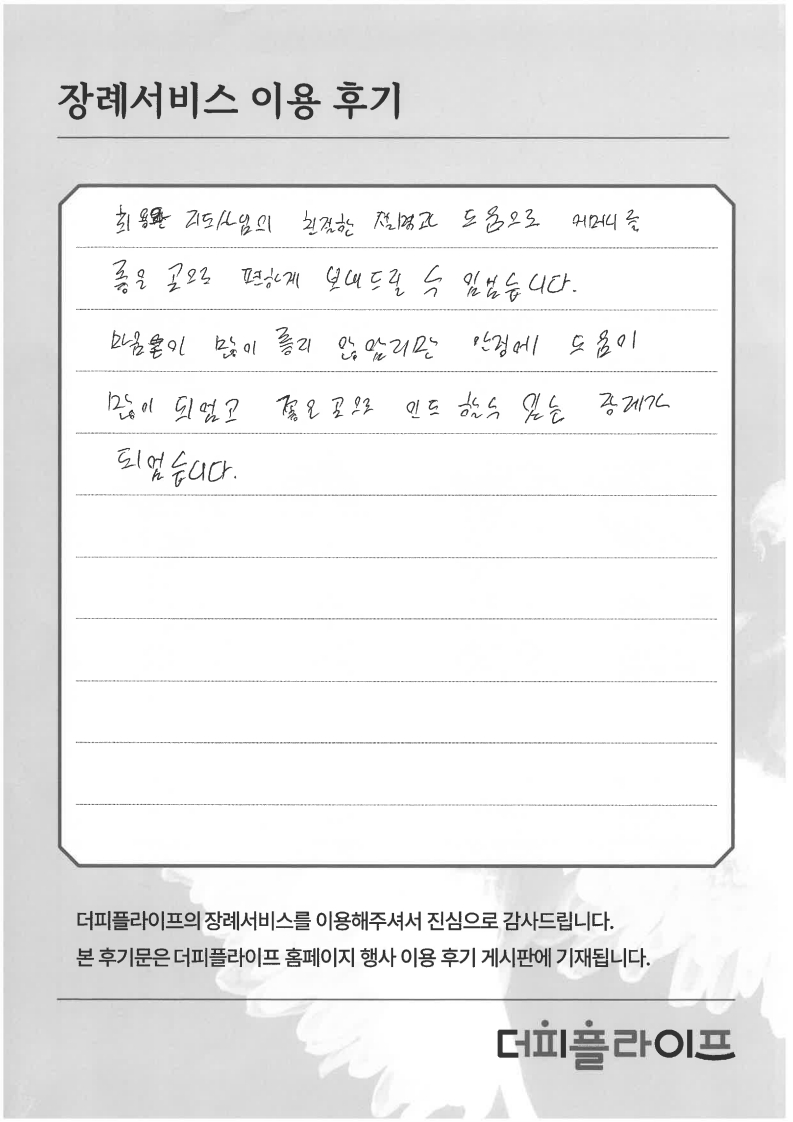 장례서비스 이용 후기
지도사님의 친절한 설명과 도움으로 어머니를
좋은 곳으로 편하게 보내드릴 수 있었습니다.
많이 않았지만 안정에 도움이
많이 되었고 좋은 곳으로 인도 할수 있는 장례가
되었습니다.
더피플라이프의 장례서비스를 이용해주셔서 진심으로 감사드립니다.
본 후기문은 더피플라이프 홈페이지 행사 이용 후기 게시판에 기재됩니다.
더피플라이프